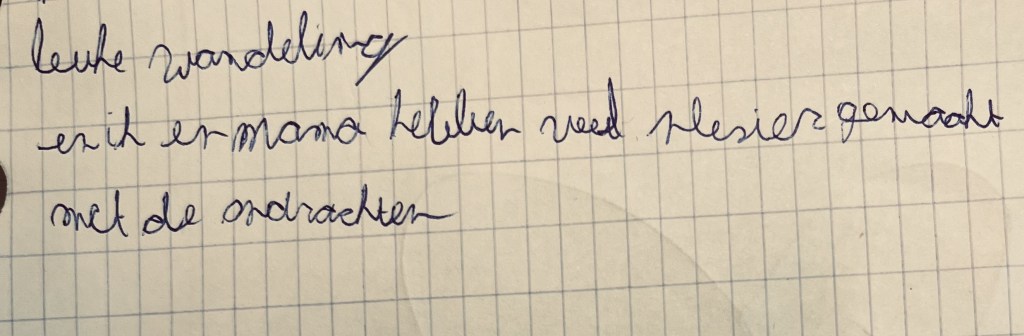 leuke wandeling
en ik en mama hebben veel plesier gemaakt
met de ondrachten